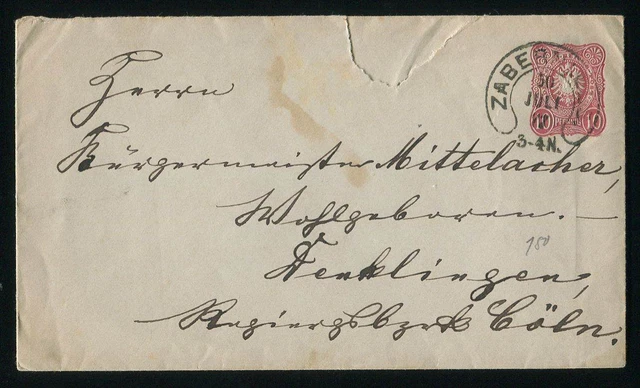 Herrn
Bürgermeister Mittelacher,
Wohlgeboren. —
Denklingen,
Regierungsbzrk Cöln.
ZABERN
30
JULI
3-4N.
10 PFENNIG 10
150